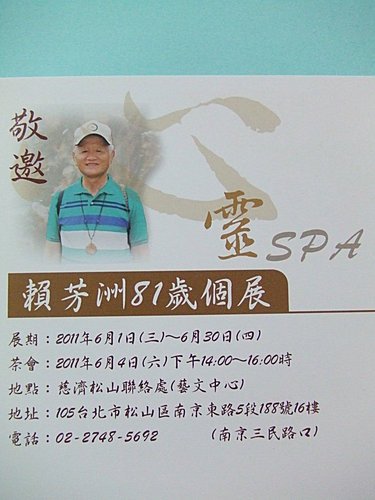 敬邀
心
靈SPA
賴芳洲81歲個展
展期：2011年6月1日(三)～6月30日(四)
茶會：2011年6月4日(六)下午14:00～16:00時
地點：慈濟松山聯絡處(藝文中心)
地址：105台北市松山區南京東路5段188號16樓
電話：02-2748-5692 (南京三民路口)